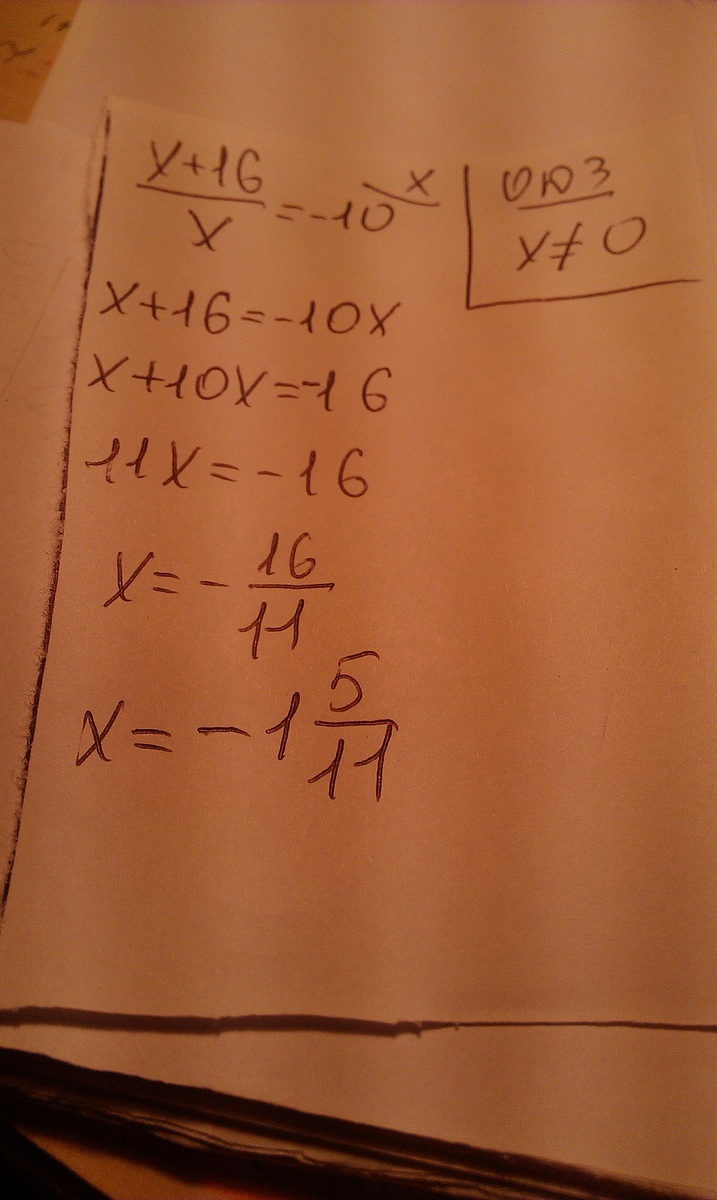 x+16/x = -10 x
ОДЗ
x≠0
x+16=-10x
x+10x=-16
11x=-16
x=-16/11
x=-1 5/11